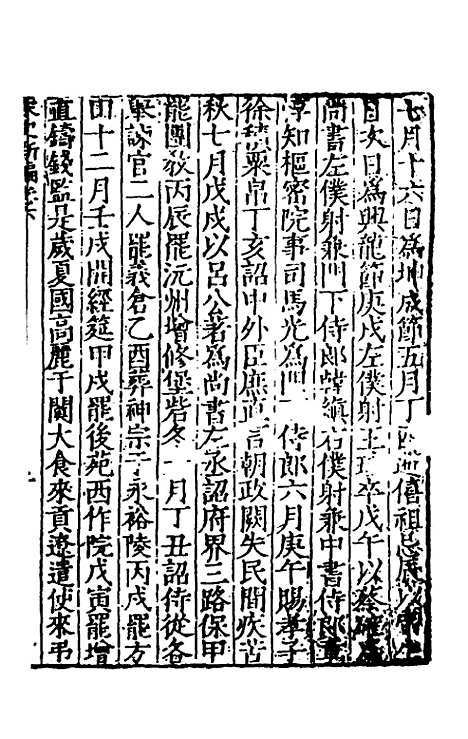 七月十六日為坤成節五月丁酉僖祖忌辰以明年
日次日為興龍節庚戌左僕射王珪卒戊午以蔡確為
尚書左僕射兼門下侍郎韓縝右僕射兼中書侍郎章
惇知樞密院事司馬光為門侍郎六月庚午賜孝子
徐積粟帛丁亥詔中外臣庶直言朝政闕失民間疾苦
秋七月戊戌以呂公著為尚書左丞詔府界三路保甲
罷團教丙辰罷沅州增修堡砦冬月丁丑詔侍從各
舉諫官二人罷義倉乙酉葬神宗于永裕陵丙戌罷方
田十二月壬戌開經筵甲戌罷後苑西作院戊寅罷增
置鑄錢監是歲夏國高麗于闐大食來貢遼遣使來弔
宋史新編卷六